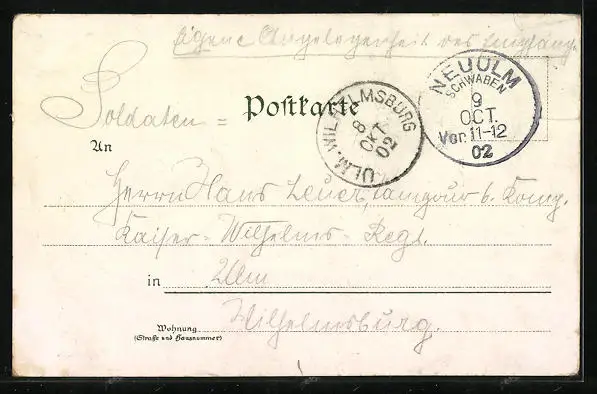 Eigene Angelegenheit des Empfäng.
Soldaten =
Postkarte
ULM. WILHELMSBURG
8
OKT.
02
NEUULM
SCHWABEN
9
OCT.
Vor. 11-12
02
An
Herrn Hans Leuer, tambour b. König.
Kaiser-Wilhelms-Regt.
in Ulm
Wohnung
(Straße und Hausnummer)
Wilhelmsburg.